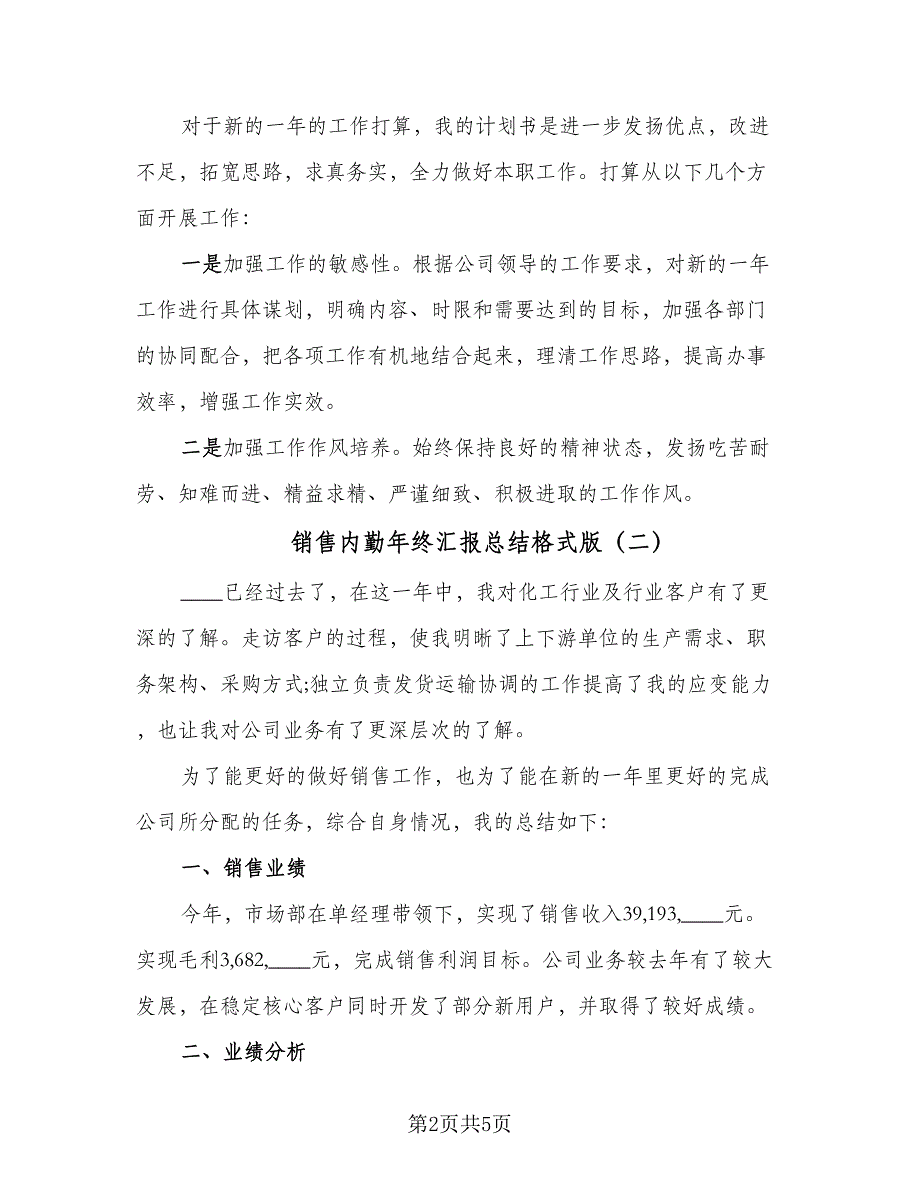 对于新的一年的工作打算，我的计划书是进一步发扬优点，改进
不足，拓宽思路，求真务实，全力做好本职工作。打算从以下几个方
面开展工作：
一是加强工作的敏感性。根据公司领导的工作要求，对新的一年
工作进行具体谋划，明确内容、时限和需要达到的目标，加强各部门
的协同配合，把各项工作有机地结合起来，理清工作思路，提高办事
效率，增强工作实效。
二是加强工作作风培养。始终保持良好的精神状态，发扬吃苦耐
劳、知难而进、精益求精、严谨细致、积极进取的工作作风。
销售内勤年终汇报总结格式版（二）
____已经过去了，在这一年中，我对化工行业及行业客户有了更
深的了解。走访客户的过程，使我明晰了上下游单位的生产需求、职
务架构、采购方式;独立负责发货运输协调的工作提高了我的应变能力
，也让我对公司业务有了更深层次的了解。
为了能更好的做好销售工作，也为了能在新的一年里更好的完成
公司所分配的任务，综合自身情况，我的总结如下：
一、销售业绩
今年，市场部在单经理带领下，实现了销售收入39,193,____元。
实现毛利3,682,____元，完成销售利润目标。公司业务较去年有了较大
发展，在稳定核心客户同时开发了部分新用户，并取得了较好成绩。
二、业绩分析
第2页共5页